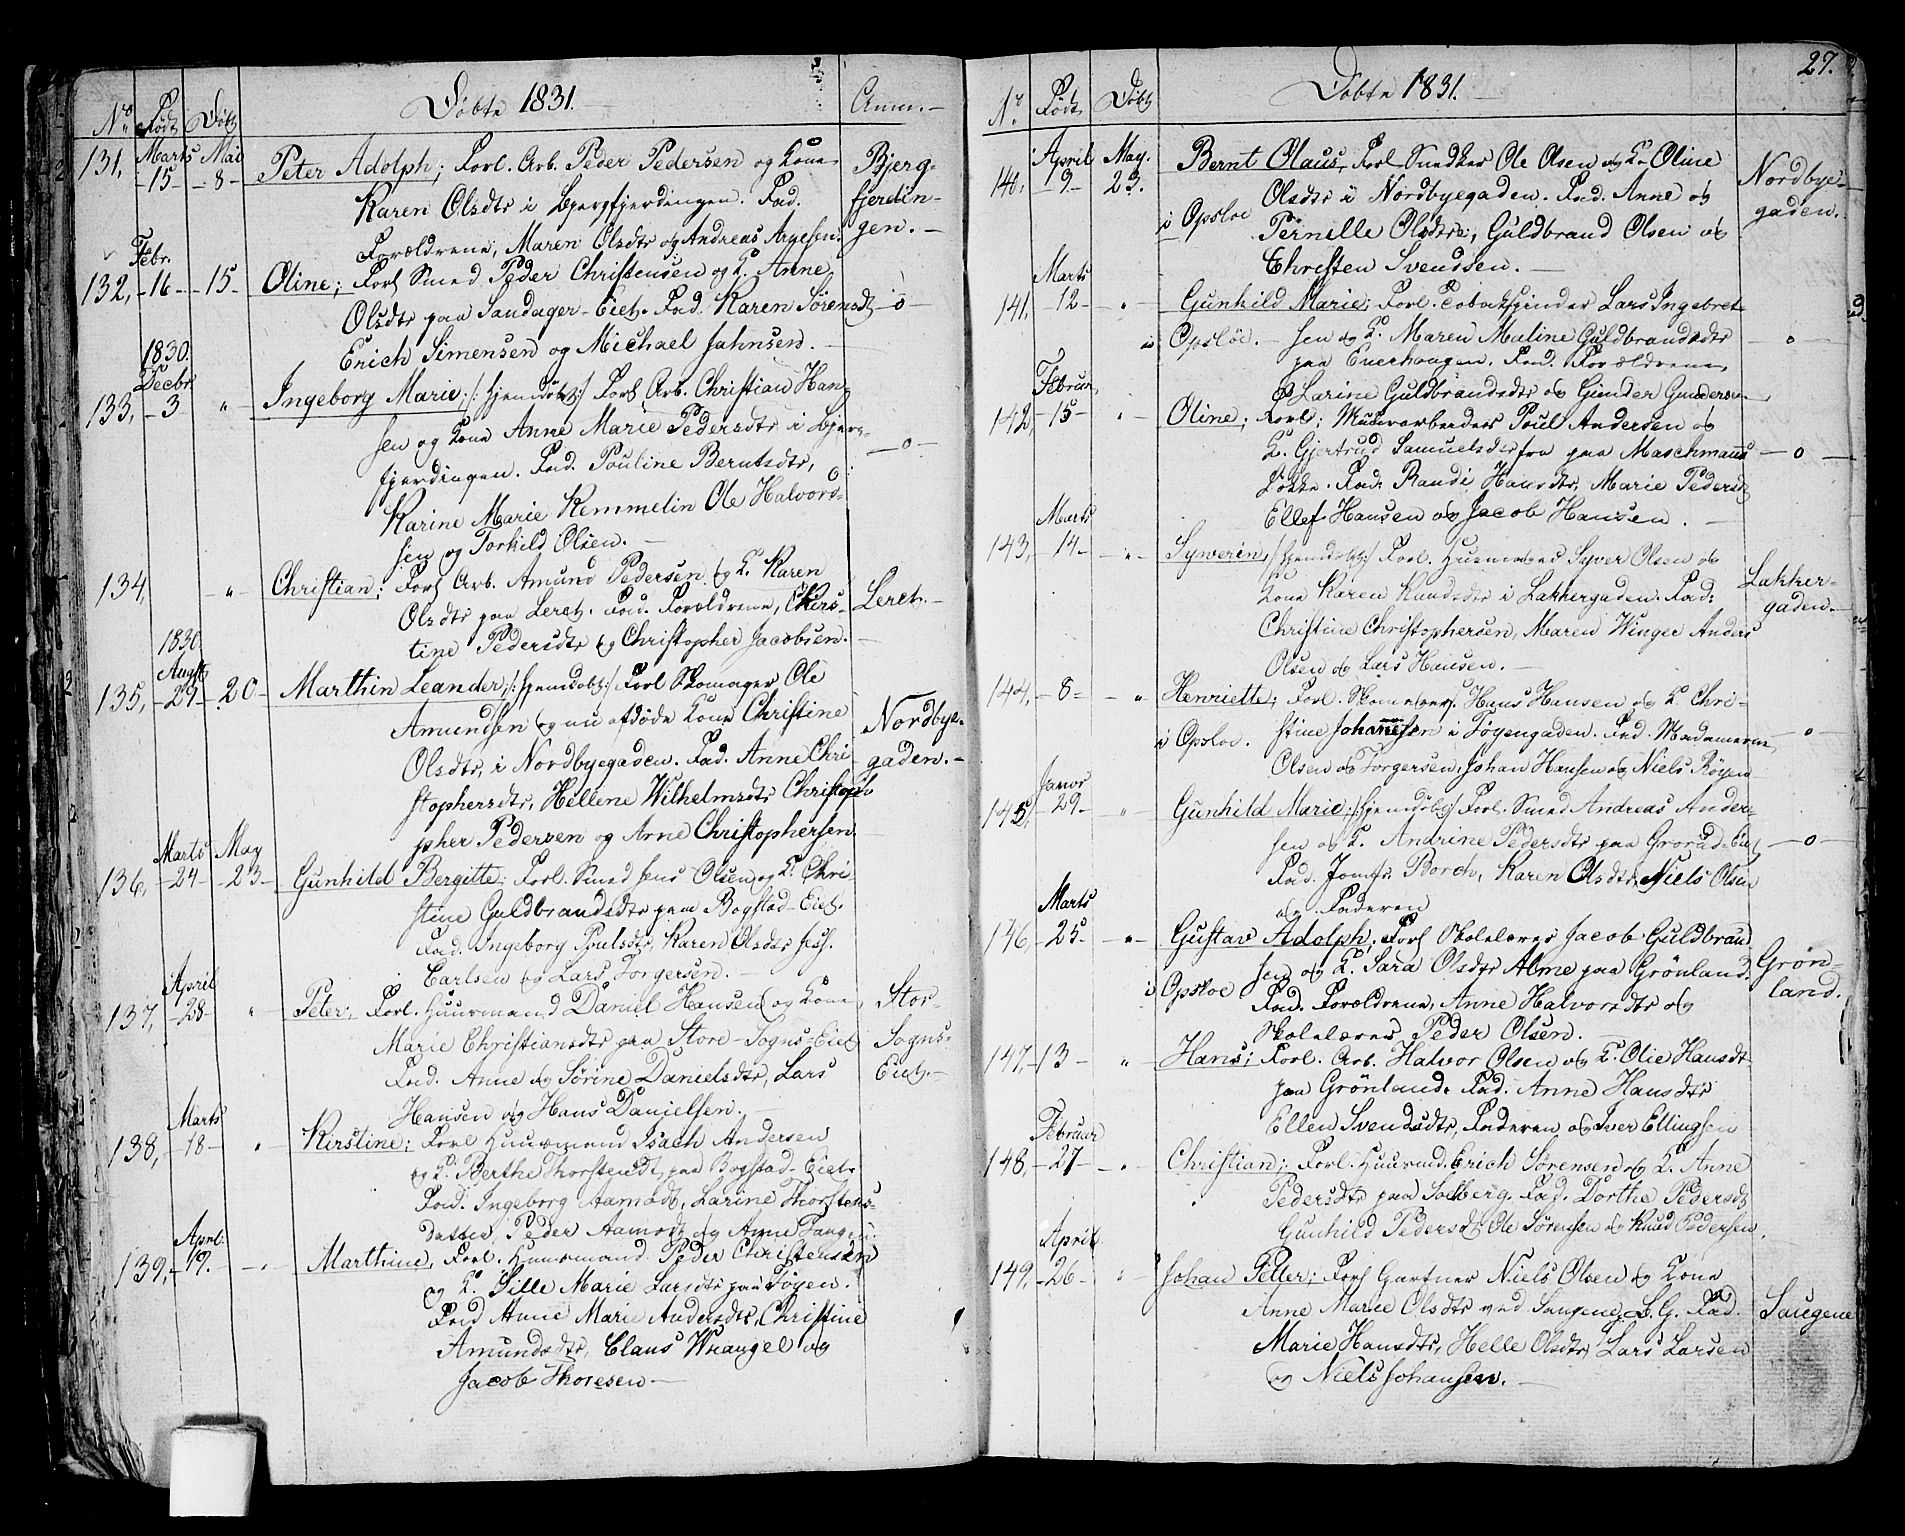 Døbte 1831.
No. Født Døbt Anm.
131, Marts 15 Mai 8 Peter Adolph; Forl. Arb. Peder Pedersen og Kone Bjerg-
Karen Olsdtr i Bjergfjerdingen. Fad. fjerdin-
Forældrene, Maren Olsdtr og Andreas Arnesen. gen.
132, Febr. 16 15 Oline; Forl Smed Peder Christensen og K. Anne
Olsdtr paa Sandager-Eiet. Fad. Karen Sørensdt o
Erich Simensen og Michael Jahnsen.
133, 1830. Decbr 3 " Ingeborg Marie; /: hjemdøbt :/ Forl. Arb. Christian Han-
sen og Kone Anne Marie Pedersdtr i Bjerg-
fjerdingen. Fad. Pouline Berntsdtr, o
Karine Marie Kemmelin Ole Halvord-
sen og Torkild Olsen.
134, " Christian; Forl. Arb. Amund Pedersen og K. Karen
Olsdtr paa Leret. Fad. Forældrene, Chirs- Leret.
tine Pedersdtr og Christopher Jacobsen.
135, 1830 Augst 29 20 Marthin Leander; /: hjemdøbt :/ Forl Skomager Ole
Amundsen og nu afdøde Kone Christine Nordbye-
Olsdtr, i Nordbyegaden. Fad. Anne Chri- gaden.
stophersdtr, Hellene Wilhelmsdtr Christoph
pher Pedersen og Arne Christophersen
136, Marts 24 May 23 Gunhild Bergitte; Forl. Smed Jens Olsen og K. Chri
stine Guldbrandsdtr paa Bogstad-Eiet.
Fad. Ingeborg Poulsdtr, Karen Olsdtr
Carlsen og Lars Torgersen.
137, April 28 " Peter, Forl. Huusmand Daniel Hansen og Kone Stor-
Marie Christiansdtr paa Store-Sogns-Eiet Sogns-
Fad. Anne og Sørine Danielsdtr, Lars Eiet.
Hansen og Hans Danielsen.
138, Marts 18 " Kirstine; Forl Huusmand Isach Andersen
og K. Berthe Thorstensdt, paa Bogstad-Eiet.
Fad. Ingeborg Aamodt, Larine Thorstens-
datter, Peder Aamodt og Arne Tangen.
139, April. 19. " Marthine, Forl. Huusmand Peder Christensen
og K. Sille Marie Larsdtr paa Tøyen.
Fad Anne Marie Andersdtr, Christine
Amundsdtr, Claus Wrangel og
Jacob Thoresen
27.
Døbte 1831.
No. Født Døbt
140, April 9 May. 23. Bernt Olaus, Forl Snedker Ole Olsen og K. Oline Nordbye-
Olsdtr i Nordbyegaden. Fad. Anne og gaden.
i Opsloe Pernille Olsdtr, Guldbrand Olsen og
Christen Svendsen.
141. Marts 12 " Gunhild Marie; Forl. Tobaksspinder Lars Ingebret-
i Opsloe. sen og K. Maren Maline Guldbrandsdtr o
paa Enerhaugen. Fad. Forældrene,
Larine Guldbrandsdtr og Gunder Gundersen
142, Februar 15 " Oline; Forl; Muurarbeider Poul Andersen og
K. Gjertrud Samuelsdtr fra paa Maschmanns o
Løkke. Fad: Randi Hansdtr, Marie Pedersdt
Ellef Hansen og Jacob Hansen.
143, Marts 14 " Syverin, /: hjemdøbt :/ Forl. Huusmand Syver Olsen og
Kone Karen Knudsdtr i Lakkergaden. Fad: Lakker-
Christine Christophersen, Maren Winger Anders gaden.
Olsen og Lars Hansen.
144, 8 " Henriette; Forl. Hans Hansen og K. Chri-
i Opsloe. stine Johannesen i Tøyengaden. Fad. Madamerne "
Olsen og Torgersen, Johan Hansen og Niels Røyen
145, Janur 29 " Gunhild Marie; /: hjemdøbt :/ Forl. Smed Andreas Ander-
sen og K. Andrine Pedersdtr paa Grorud-Eiet o
Fad. Jomfr. Borch, Karen Olsdtr, Niels Olsen
og Faderen
146, Marts 25 " Gustav Adolph; Forl Skolelærer Jacob Guldbrand
sen og K. Sara Olsdtr Alme paa Grönland. Grøn-
i Opsloe Fad. Forældrene, Anne Halvorsdtr og land.
Skolelærer Peder Olsen.
147, 13 " Hans; Forl. Arb. Halvor Olsen og K. Olie Hansdt
paa Grönland. Fad. Anne Hansdtr
Ellen Svendsdtr, Faderen og Iver Ellingsen
148, Februar 27 " Christian; Forl. Huusmd. Erich Sørensen og K. Anne
Pedersdtr paa Solberg. Fad. Dorthe Pedersdt
Gunhild Pedersdt, Ole Sørensen og Knud Pedersen.
149, April 26 " Johan Petter; Forl Gartner Niels Olsen og Kone
Anne Marie Olsdtr ved Saugene L. G. Fad. Saugene
Marie Hansdtr, Helle Olsdtr, Lars Larsen
og Niels Johansen.